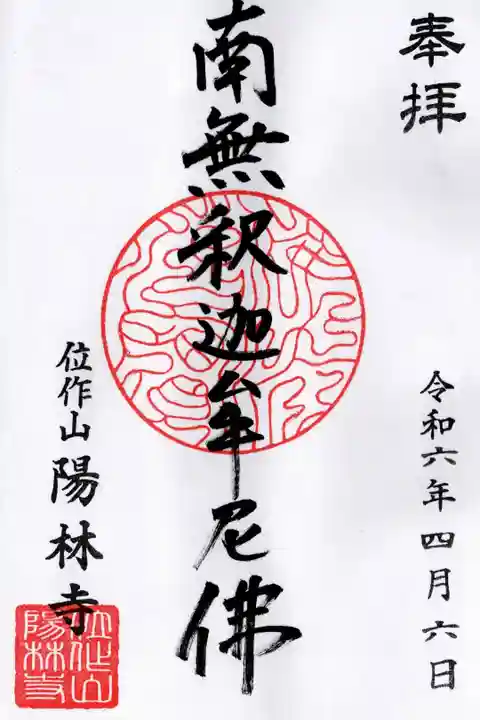 奉拝
令和六年四月六日
南無釈迦牟尼佛
位作山 陽林寺
位作山
陽林寺